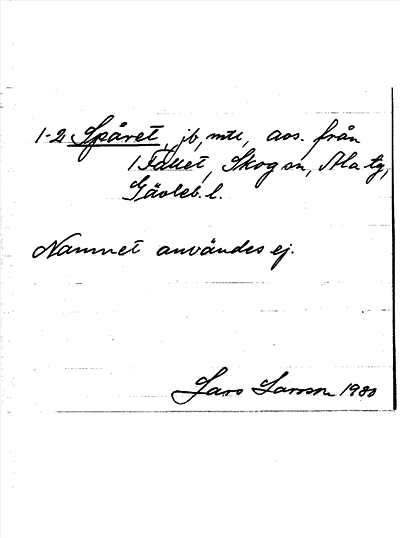 1-2 Spåret, jb, mtl, avs. från
1 Fallet, Skog sn, Ala tg,
Gävleb. l.
Namnet användes ej.
Lars Larsson 1980